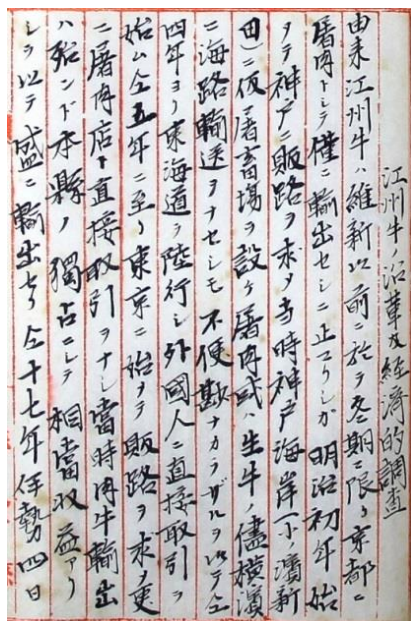 江州牛ノ沿革及経済的調査
由来江州牛ハ維新以前ニ於テ冬期ニ限リ京都ニ
屠肉トシテ僅ニ輸出セシニ止マリシガ明治初年始
メテ神戸ニ販路ヲ求メ当時神戸海岸(小濱新
田)ニ仮屠畜場ヲ設ケ屠肉或ハ生牛ノ儘横濱
ニ海路輸送ヲナセシモ不便尠ナカラザルヲ以テ仝
四年ヨリ東海道ヲ陸行シ外國人ニ直接取引ヲ
始ム仝五年ニ至リ東京ニ始メテ販路ヲ求メ更
ニ屠肉店ト直接取引ヲナシ當時肉牛輸出
ハ殆ンド本縣ノ獨占ニシテ相當収益アリ
シヲ以テ盛ニ輸出セリ仝十七年伊勢四日